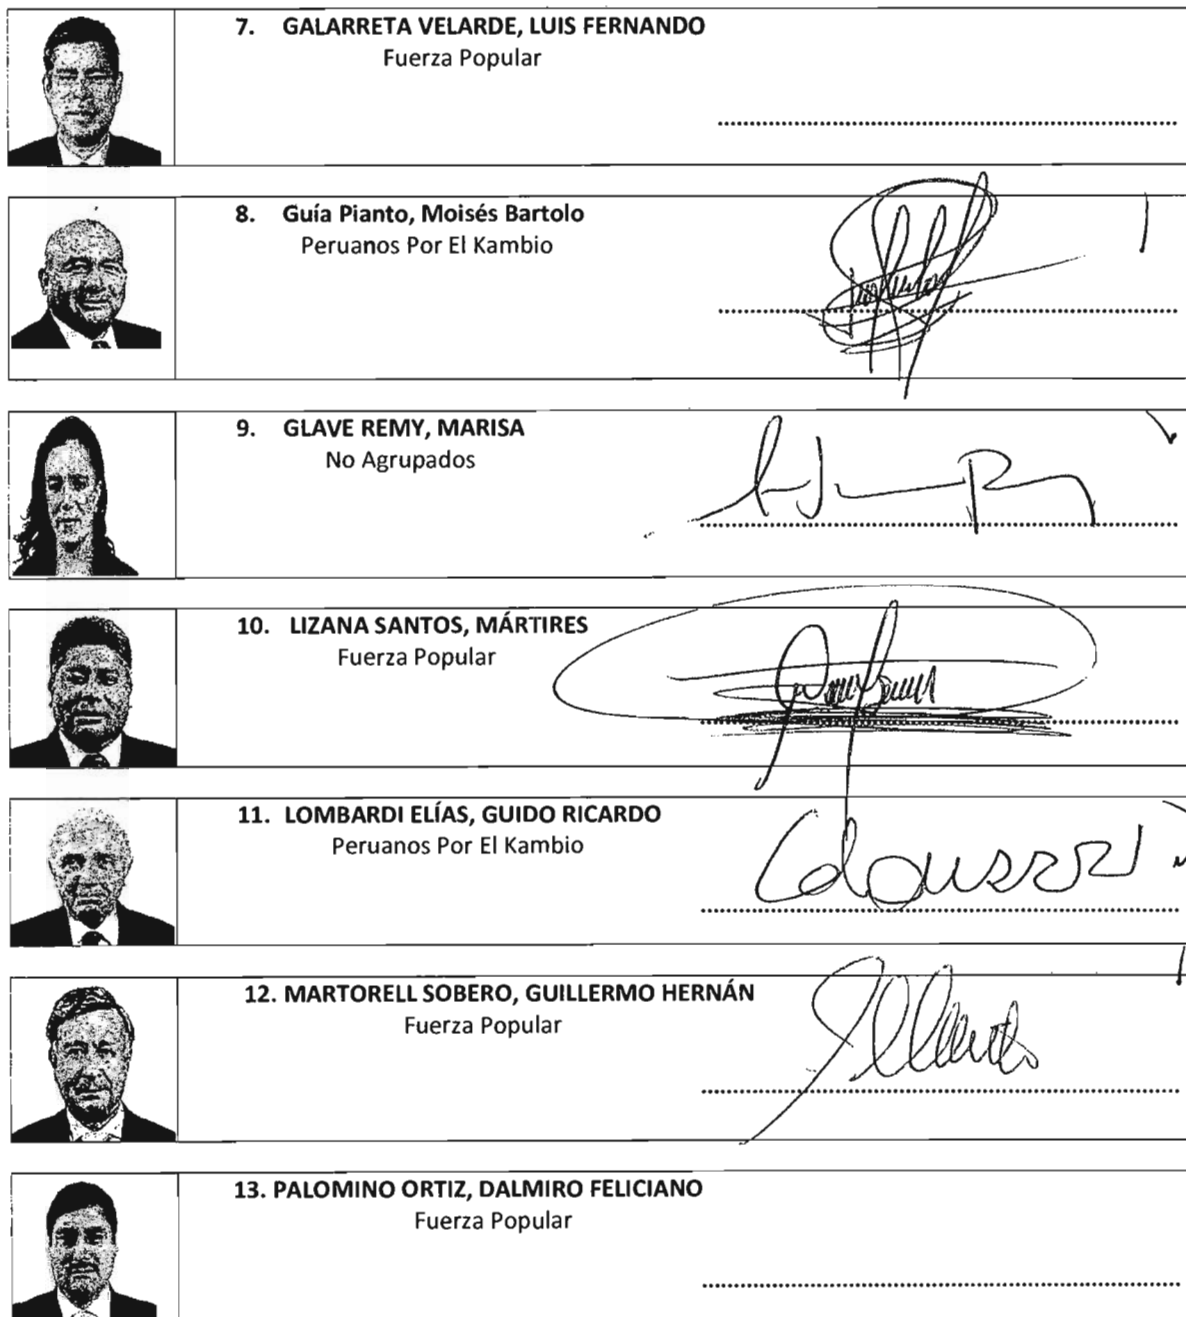 7. GALARRETA VELARDE, LUIS FERNANDO
Fuerza Popular
8. Guía Pianto, Moisés Bartolo
Peruanos Por El Kambio
9. GLAVE REMY, MARISA
No Agrupados
10. LIZANA SANTOS, MÁRTIRES
Fuerza Popular
11. LOMBARDI ELÍAS, GUIDO RICARDO
Peruanos Por El Kambio
12. MARTORELL SOBERO, GUILLERMO HERNÁN
Fuerza Popular
13. PALOMINO ORTIZ, DALMIRO FELICIANO
Fuerza Popular